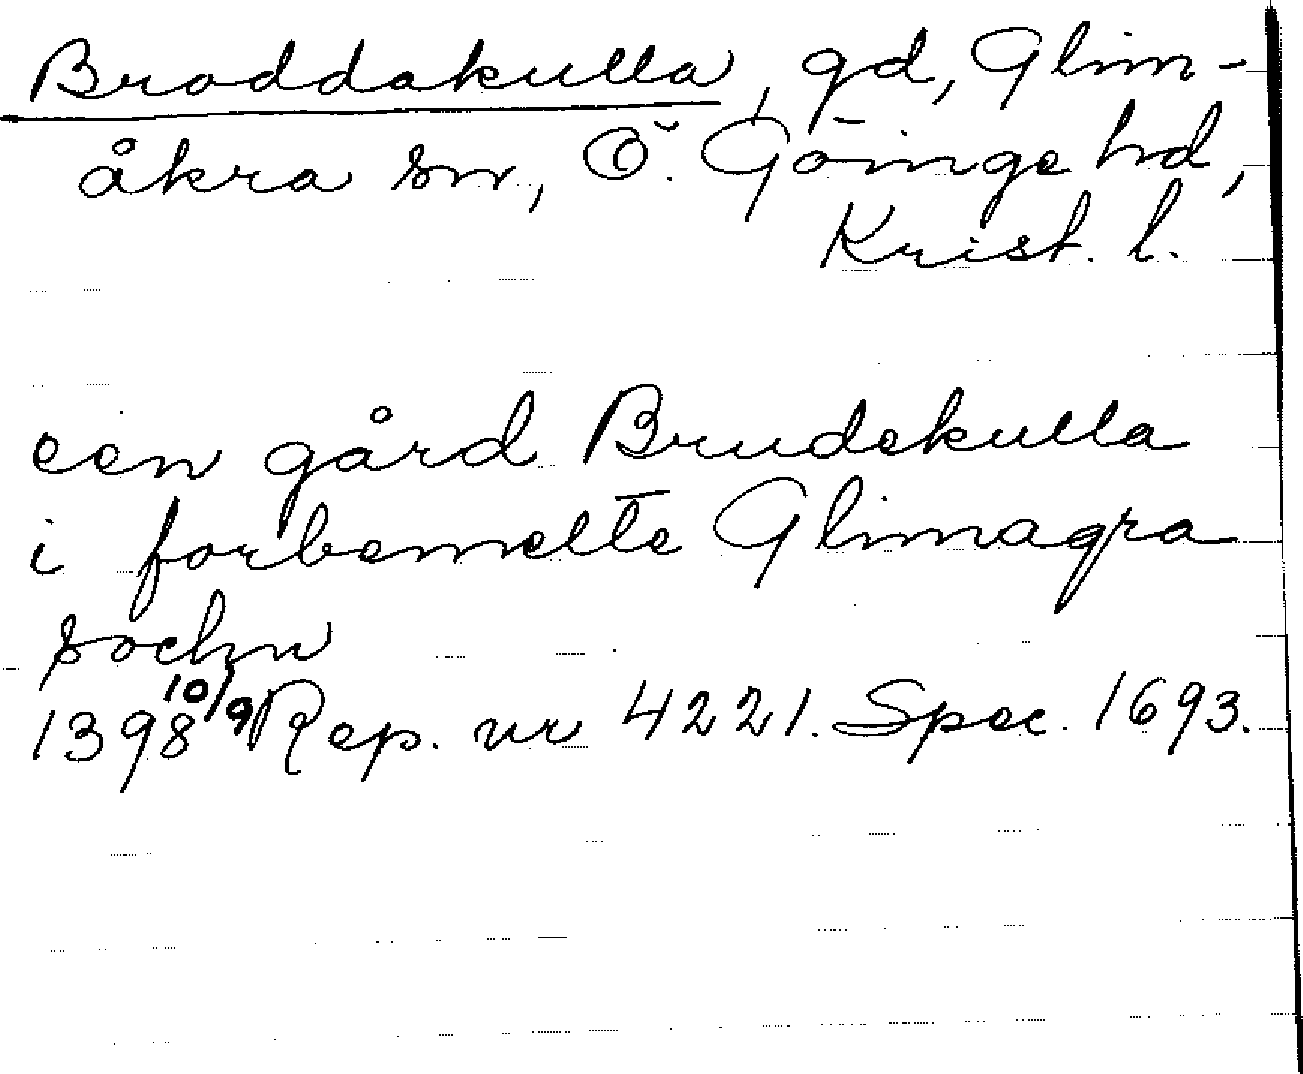 Broddakulla, gd, Glim-
åkra sn, Ö. Göinge hd,
Krist. l.
een gård Brudekulla
i forbemelte Glimagra
sochn
1398 10/9 Rep. nr 4221. Spec. 1693.